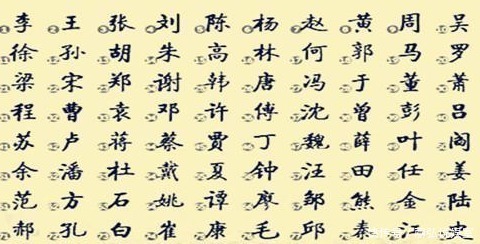 李 王 张 刘 陈 杨 赵 黄 周 吴
徐 孙 胡 朱 高 林 何 郭 马 罗
梁 宋 郑 谢 韩 唐 冯 于 董 萧
程 曹 袁 邓 许 傅 沈 曾 彭 吕
苏 卢 蒋 蔡 贾 丁 魏 薛 叶 阎
余 潘 杜 戴 夏 钟 汪 田 任 姜
范 方 石 姚 谭 廖 邹 熊 金 陆
郝 孔 白 崔 康 毛 邱 秦 江 史